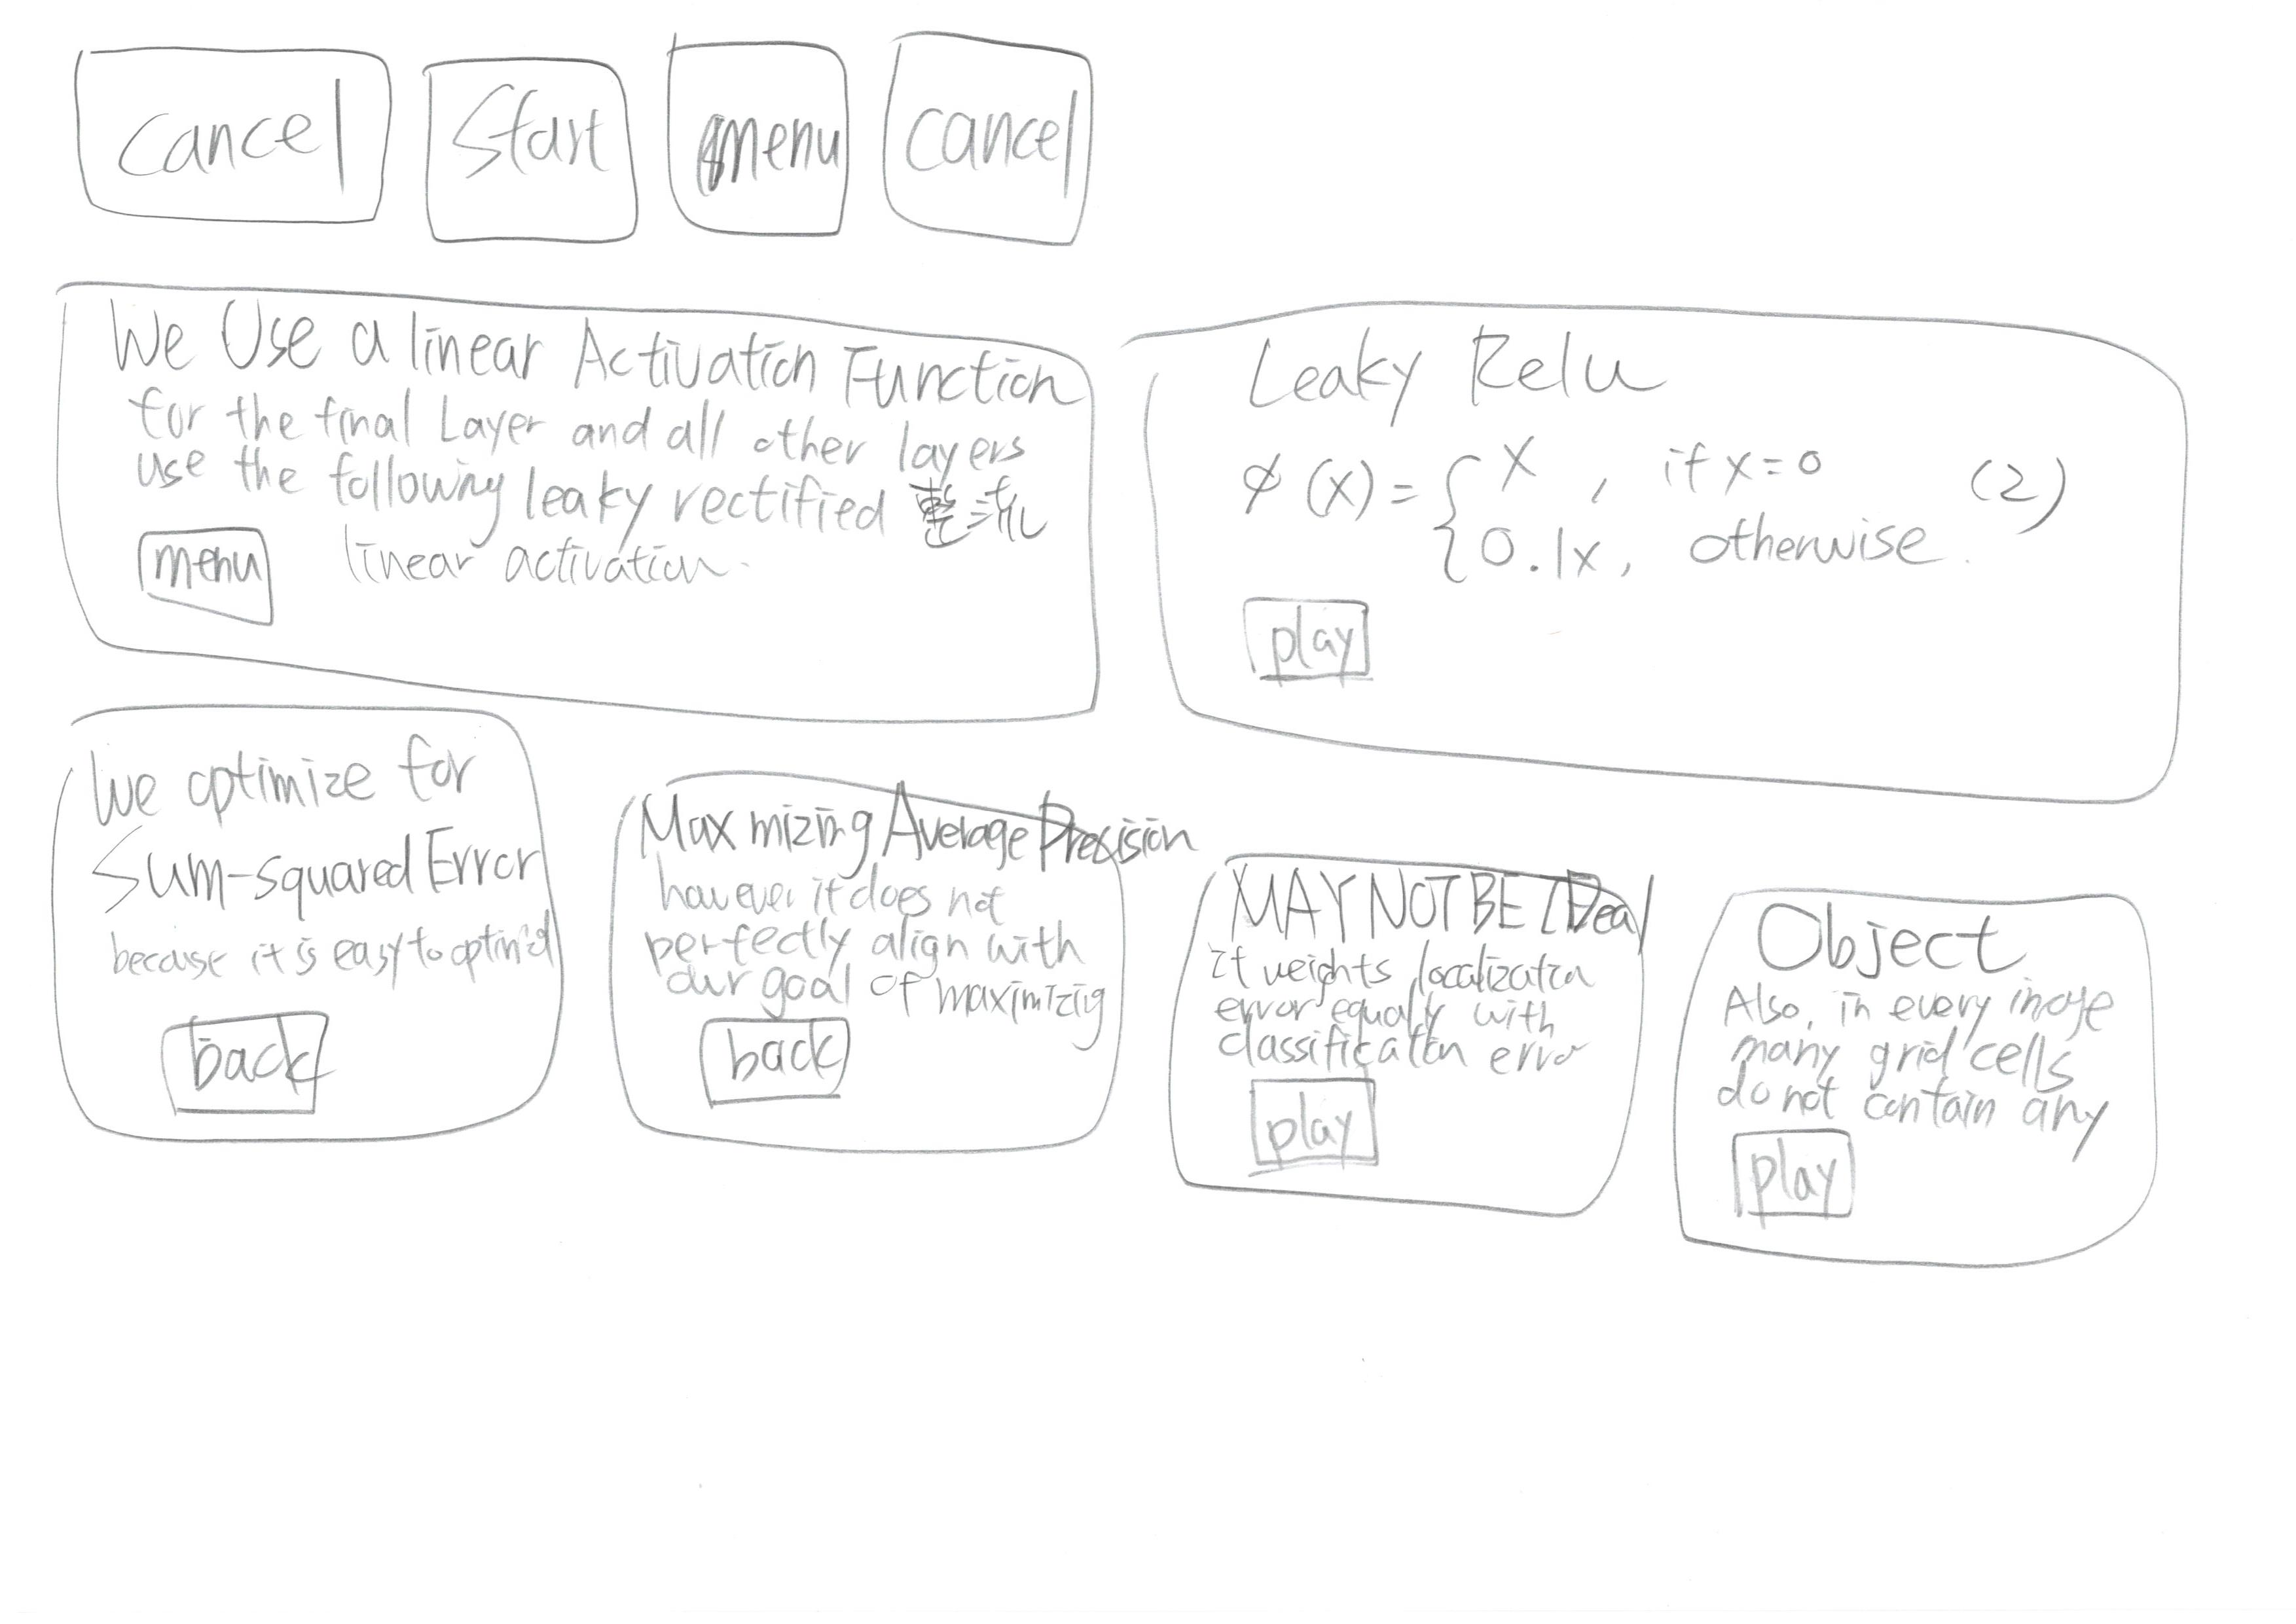 cancel
Start
menu
cancel
We Use a linear Activation Function
for the final Layer and all other layers
use the following leaky rectified 整流
linear activation.
menu
Leaky Relu
φ(x) = { x , if x=0 (2)
{ 0.1x, otherwise.
play
We optimize for
Sum-squared Error
because it is easy to optimid
back
Maxmizing Average Precision
however it does not
perfectly align with
our goal of maximizig
back
MAY NOT BE IDeal
it weights localization
error equally with
classification error
play
Object
Also, in every image
many grid cells
do not contain any
play